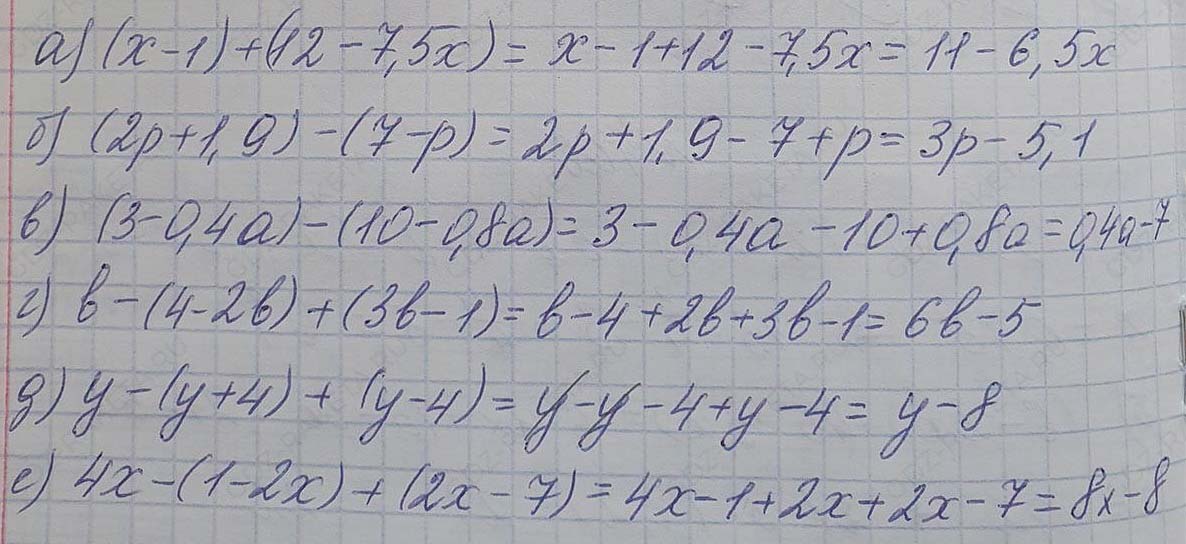 а) (x-1)+(12-7,5x)= x-1+12-7,5x= 11-6,5x
б) (2p+1,9)-(7-p)= 2p+1,9-7+p= 3p-5,1
в) (3-0,4a)-(10-0,8a)= 3-0,4a-10+0,8a=0,4a-7
г) b-(4-2b)+(3b-1)= b-4+2b+3b-1= 6b-5
д) y-(y+4)+(y-4)= y-y-4+y-4= y-8
е) 4x-(1-2x)+(2x-7)= 4x-1+2x+2x-7= 8x-8